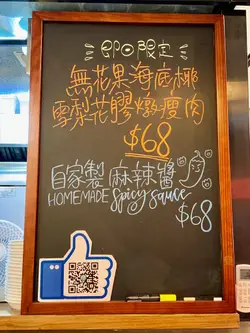 即日限定
無花果海底椰
雪梨花膠燉瘦肉
$68
自家製麻辣醬
HOMEMADE spicy sauce
$68